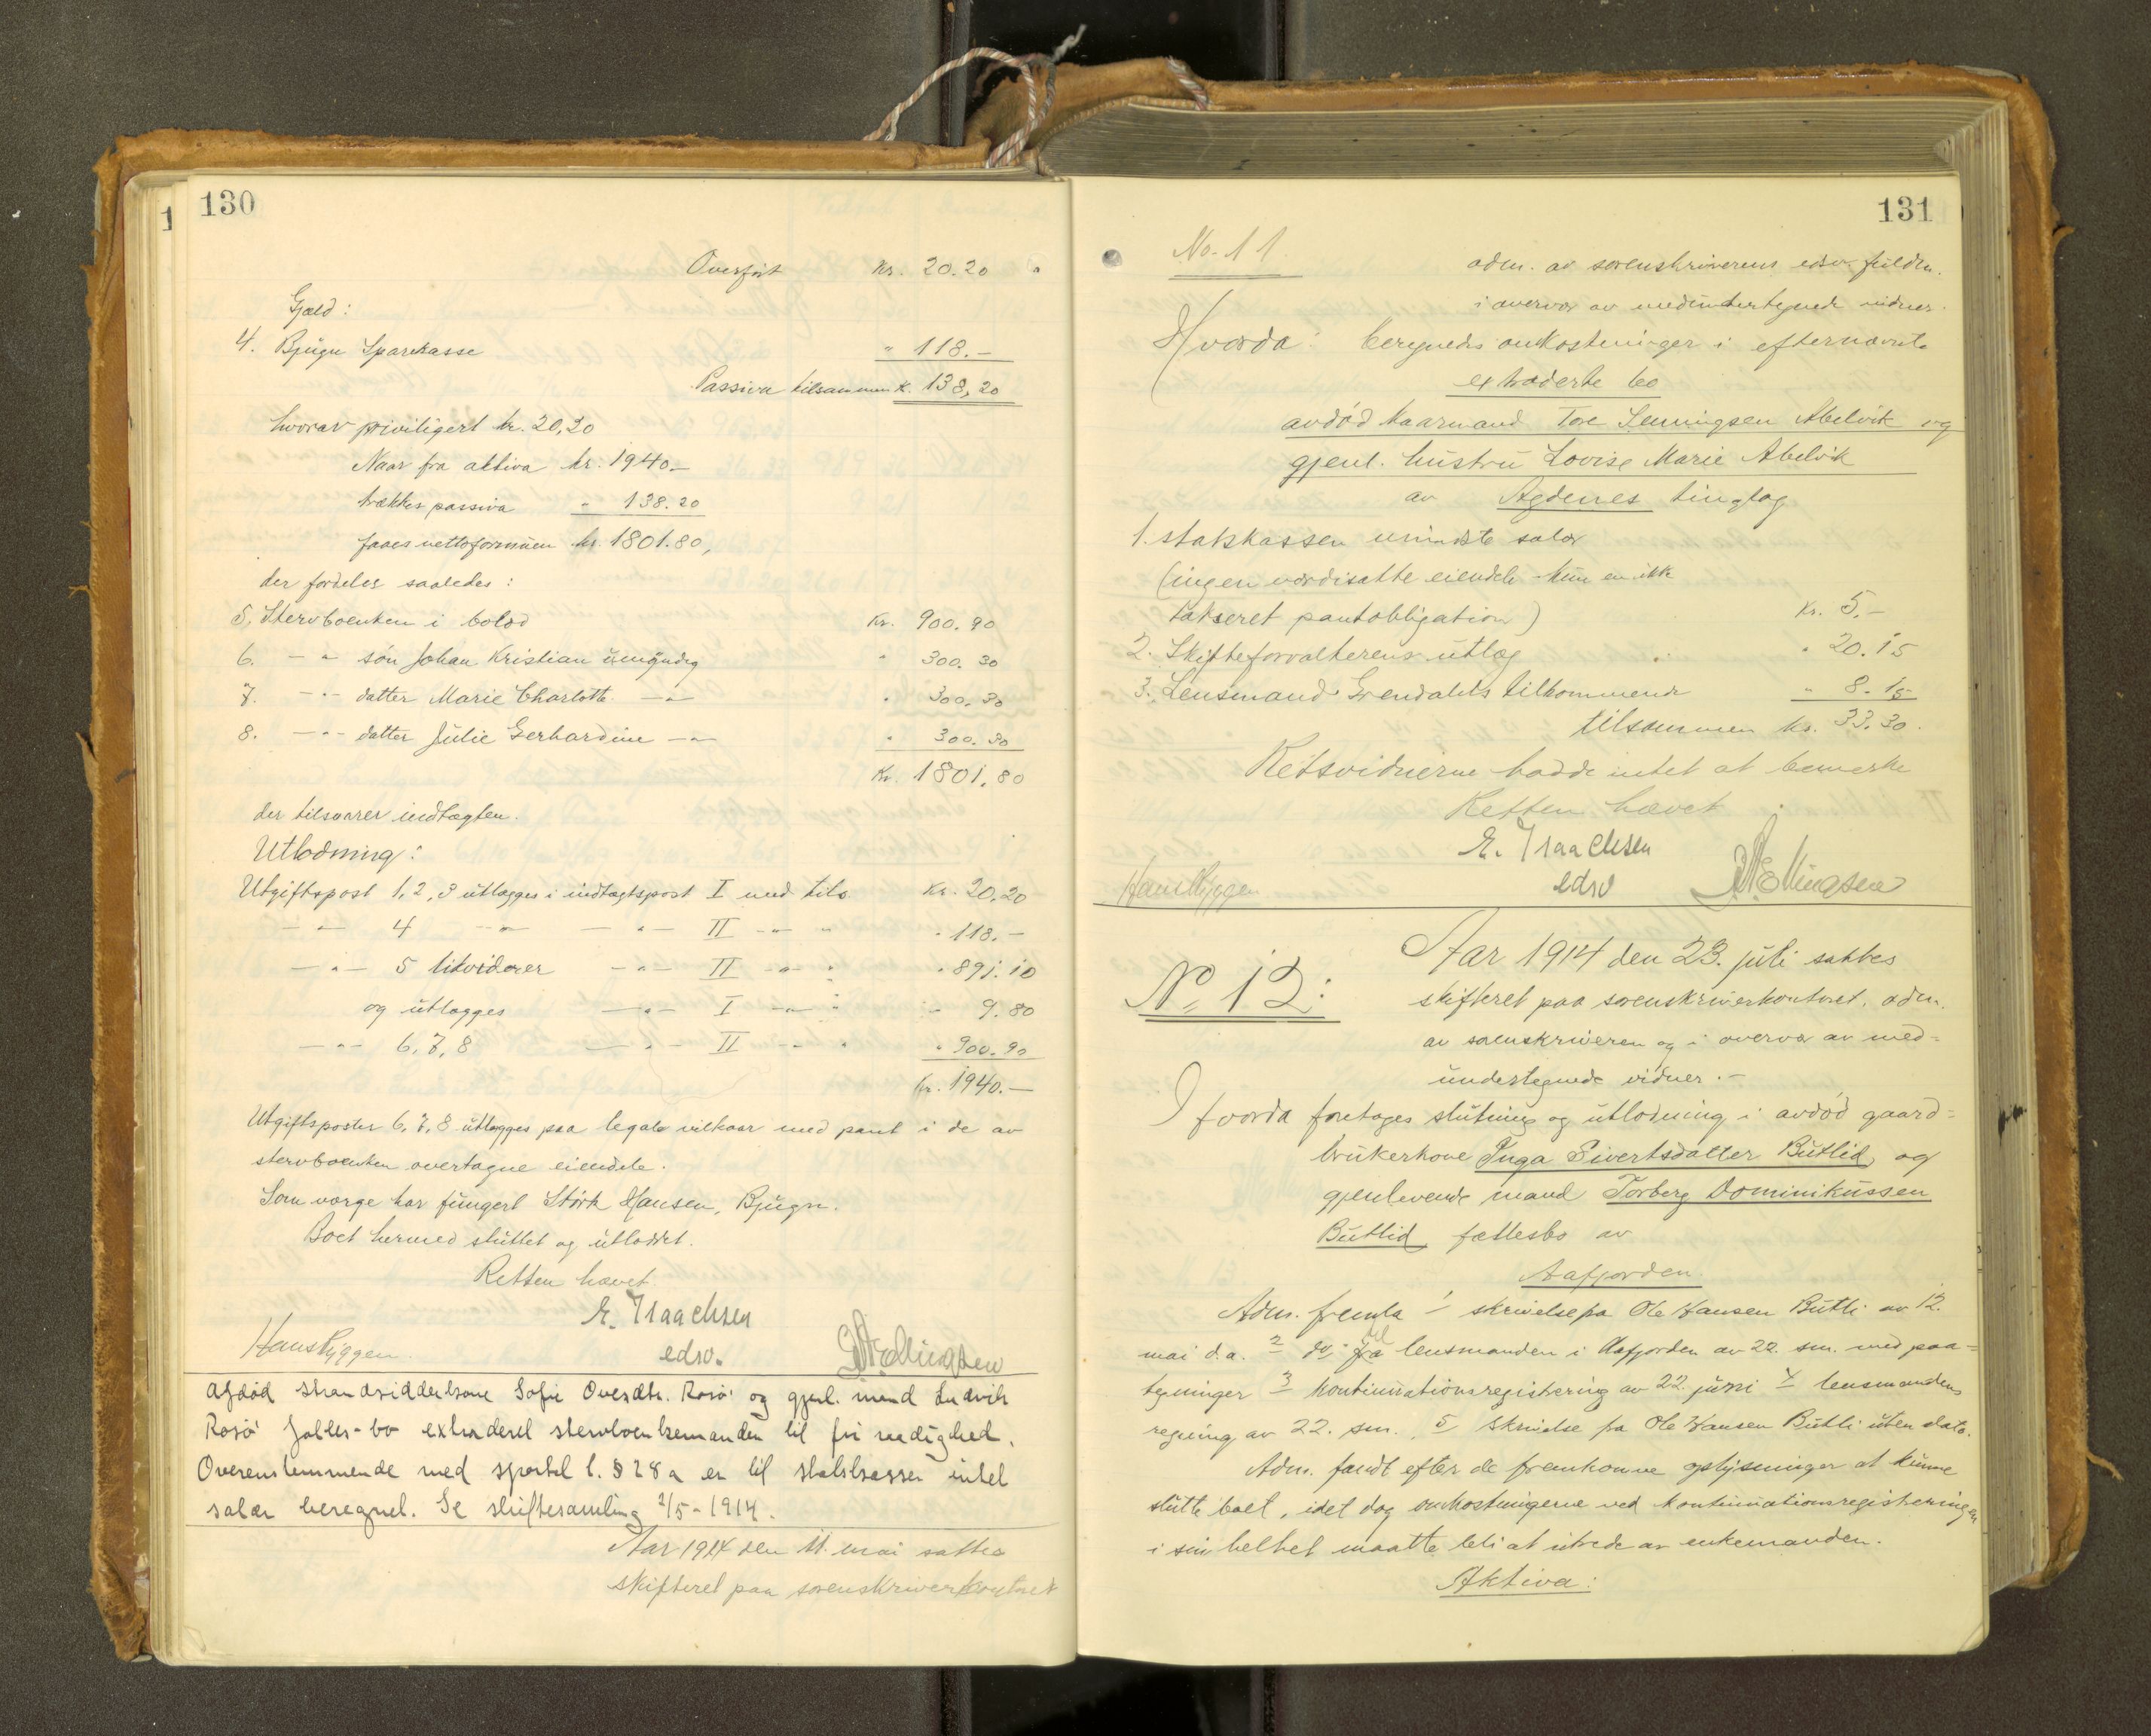 130
Overført Kr. 20.20
Gjæld:
4. Bjugn Sparekasse " 118.-
Passiva tilsammen K. 138,20
hvorav priviligert kr. 20,20
Naar fra aktiva kr. 1940.-
trækkes passiva " 138.20
faaes nettoformuen kr. 1801.80,
der fordeles saaledes:
5. Stervboenken i bolod Kr. 900.90
6. - " - søn Johan Kristian umyndig " 300.30
7. - " - datter Marie Charlotte - " - " 300.30
8. - " - datter Julie Gerhardine - " - " 300.30
Kr. 1801,80
der tilsvarer indtægten.
Utlodning:
Utgiftspost 1, 2, 3 utlægges i indtægtspost I med tils. Kr. 20,20
- " - 4 - " - - " - II - " - " " 118.-
- " - 5 likviderer - " - II - " - " " 891.10
og utlægges - " - I - " - " " 9.80
- " - 6, 7, 8 - " - II - " - " " 900.90
Kr. 1940.-
Utgiftsposter 6, 7, 8 utlægges paa legale vilkaar med pant i de av
stervboenken overtagne eiendele.
Som værge har fungert Størk Hansen, Bjugn.
Boet hermed sluttet og utloddet.
Retten hævet.
E. Isaachsen
Hans Ryggen. edsv.
Afdød strandsidderkone Sofie Ovesdtr. Rosø og gjenl. mand Ludvik
Rosø fælles-bo extraderet stervboenkemanden til fri raadighed.
Overenstemmende med sportel l. § 28 a er til statskassen intet
salær beregnet. Se skiftesamling 2/5-1914.
Aar 1914 den 11. mai sattes
skifteret paa sorenskriverkontoret
131
No. 11.
adm. av sorenskriverens edsv. fuldm.
i overvær av medundertegnede vidner.
Hvorda: beregnedes omkostninger i efternævnte
extraderte bo
avdød kaarmand Tore Henningsen Abelvik og
gjenl. hustru Lovise Marie Abelvik
av Agdenes tinglag
1. statskassen mindste salær
(ingen værdisatte eiendele kun en ikke
takseret pantobligation) Kr. 5.-
2. Skifteforvalterens utlæg " 20.15
3. Lensmand Grendahls tilkommende " 8.15
tilsammen kr. 33.30.
Retsvidnerne hadde intet at bemerke
Retten hævet.
E. Isaachsen
Hans Ryggen edsv
No 12:
Aar 1914 den 23. juli sattes
skifteret paa sorenskriverkontoret, adm.
av sorenskriveren og i overvær av med-
undertegnede vidner.-
Hvorda foretages slutning og utlodning i avdød gaard-
brukerkone Inga Sivertsdatter Butlid, og
gjenlevende mand Torberg Dominikussen
Butlid fællesbo av
Aafjorden
Adm. fremla 1 skrivelse fra Ole Hansen Butli av 12.
mai d.a. 2 do. til lensmanden i Aafjorden av 22. sm. med paa-
tegninger 3 kontinuationsregistrering av 22 juni 4 lensmandens
regning av 22. sm., 5 skrivelse fra Ole Hansen Butli uten dato.
Adm. fandt efter de fremkomne oplysninger at kunne
slutte boet, idet dog omkostningerne ved kontinuationsregistreringen
i sin helhet maatte bli at utrede av enkemanden.
Aktiva: